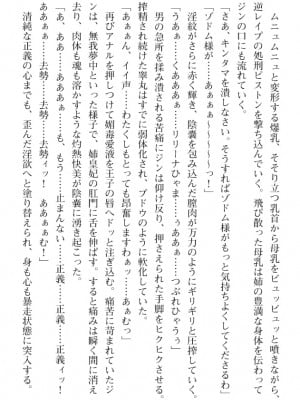 ムニュムニュと変形する爆乳、そそり立つ乳首から母乳をピュッピュッと噴きながら、
逆レイプの処刑ピストンを撃ち込んでいく。飛び散った母乳は姉の豊満な身体を伝って
ジンの口にも流れていく。
「さあ、キンタマを潰しなさい。そうすればゾドム様がもっと気持ちよくしてくださるわ」
「ゾドム様が……あぁぁ～～～～～っ！」
淫紋がさらに赤く輝き、陰嚢を包み込んだ膣肉が万力のようにギリギリと圧搾していく。
「うあぁっ……くううっ……ああぁっ……リリーナひゃま……つぶれひゃうぅ」
男の急所を揉み潰される苦痛にジンは仰け反り、押さえられた手脚をヒクヒクさせる。
搾精され続けた睾丸はすでに弱体化され、ブドウのように軟化していた。
「あぁぁん、イイ声……わたくしもとっても昂奮しますわぁっ……あぁむっ」
再びアナルを押しつけて媚毒愛液を王子の唇へドッと注ぎ込む。痛苦に苛まれていたジ
ンは、無我夢中といった様子で、姉皇妃の肛門に舌を伸ばす。すると痛みは瞬間に消え
去り、肉体も魂も溶かすような灼熱快美が陰嚢に湧き起こった。
「あ、ああ……ああぁ……も、もう……止まんない……正義……正義……正義ィッ！
ああぁぁ……去勢ッ……去勢ッ！　ああぁぁむ！」
清純な正義の心までも、歪んだ淫欲へと塗り替えられ、身も心も暴走状態に突入する。